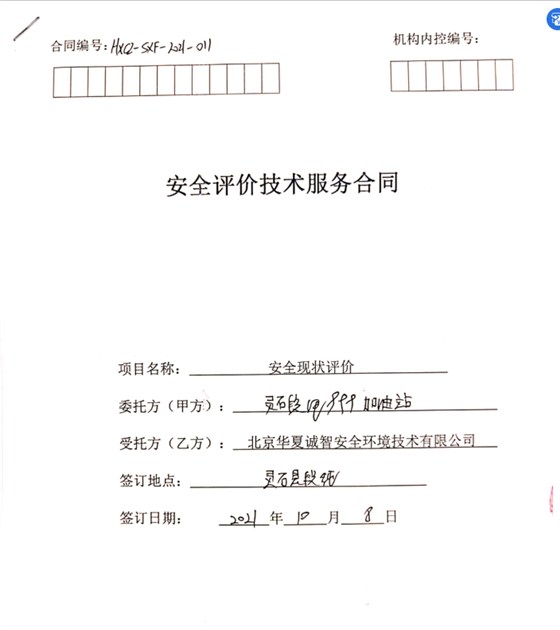 合同编号：HXCZ-SXF-2021-011
机构内控编号：
安全评价技术服务合同
项目名称： 安全现状评价
委托方（甲方）： 灵石段 加油站
受托方（乙方）： 北京华夏诚智安全环境技术有限公司
签订地点： 灵石县段纯
签订日期： 2021 年 10 月 8 日